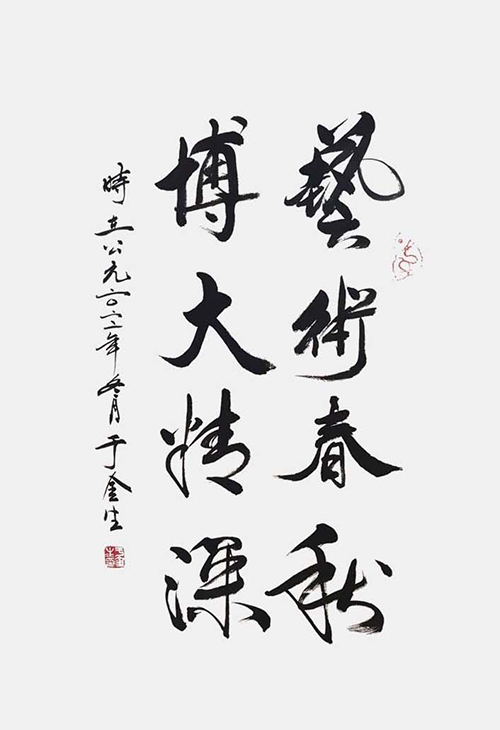 藝術春秋
博大精深
時在公元二〇〇三年冬月于金生